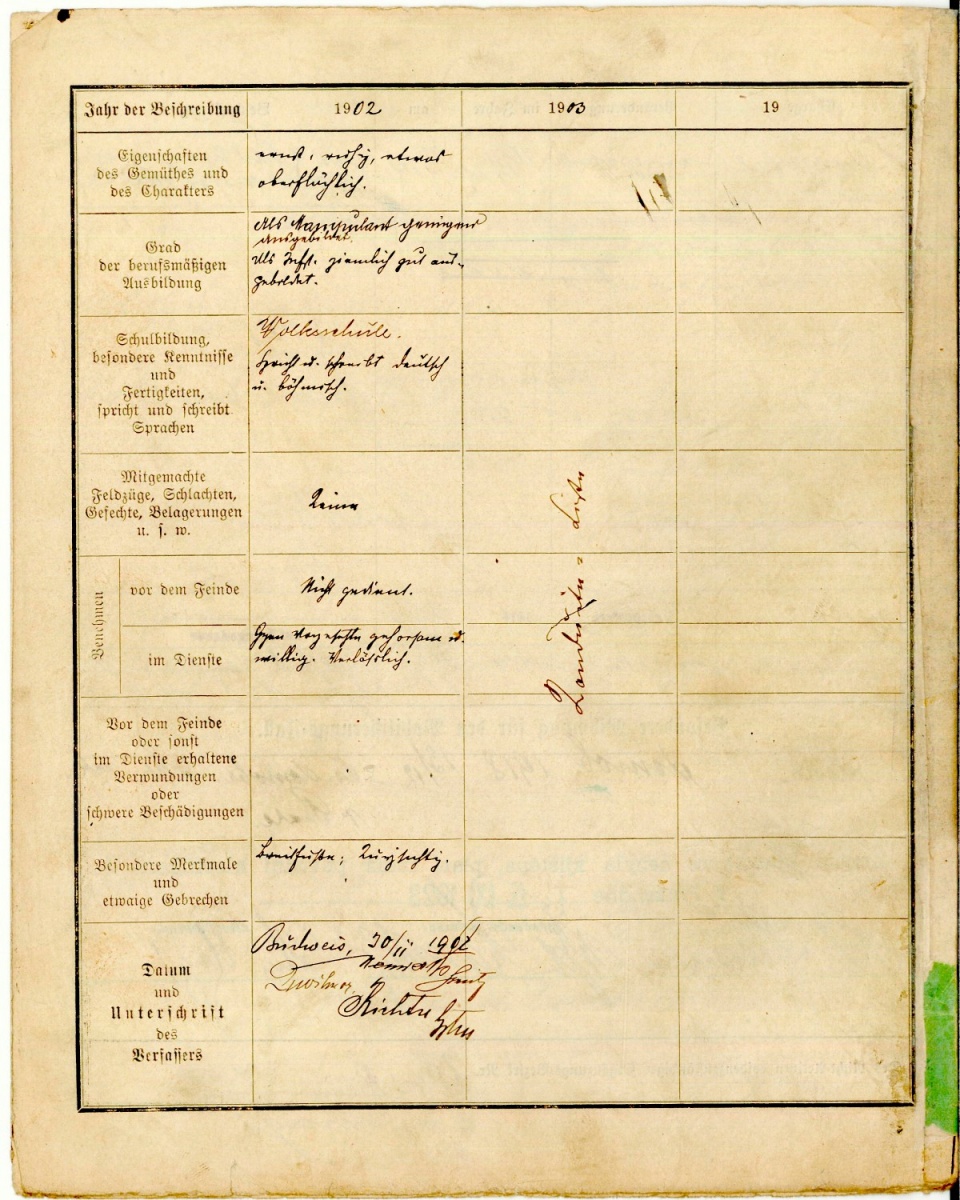 Jahr der Beschreibung 1902 1903 19
Eigenschaften
des Gemüthes und
des Charakters
ernst, ruhig, etwas
oberflächlich.
Grad
der berufsmäßigen
Ausbildung
Als Manipulant genügend
ausgebildet.
Als Inft. ziemlich gut aus-
gebildet.
Schulbildung,
besondere Kenntnisse
und
Fertigkeiten,
spricht und schreibt
Sprachen
Volksschule.
Spricht u. schreibt deutsch
u. böhmisch.
Mitgemachte
Feldzüge, Schlachten,
Gefechte, Belagerungen
u. s. w.
Keine
Benehmen
vor dem Feinde
Nicht gedient.
im Dienste
Gegen Vorgesetzte gehorsam u.
willig. Verlässlich.
Vor dem Feinde
oder sonst
im Dienste erhaltene
Verwundungen
oder
schwere Beschädigungen
Besondere Merkmale
und
etwaige Gebrechen
Kurzsichtig.
Datum
und
Unterschrift
des
Verfassers
Budweis, 30/11 1902
Richter
Konduiten- Liste